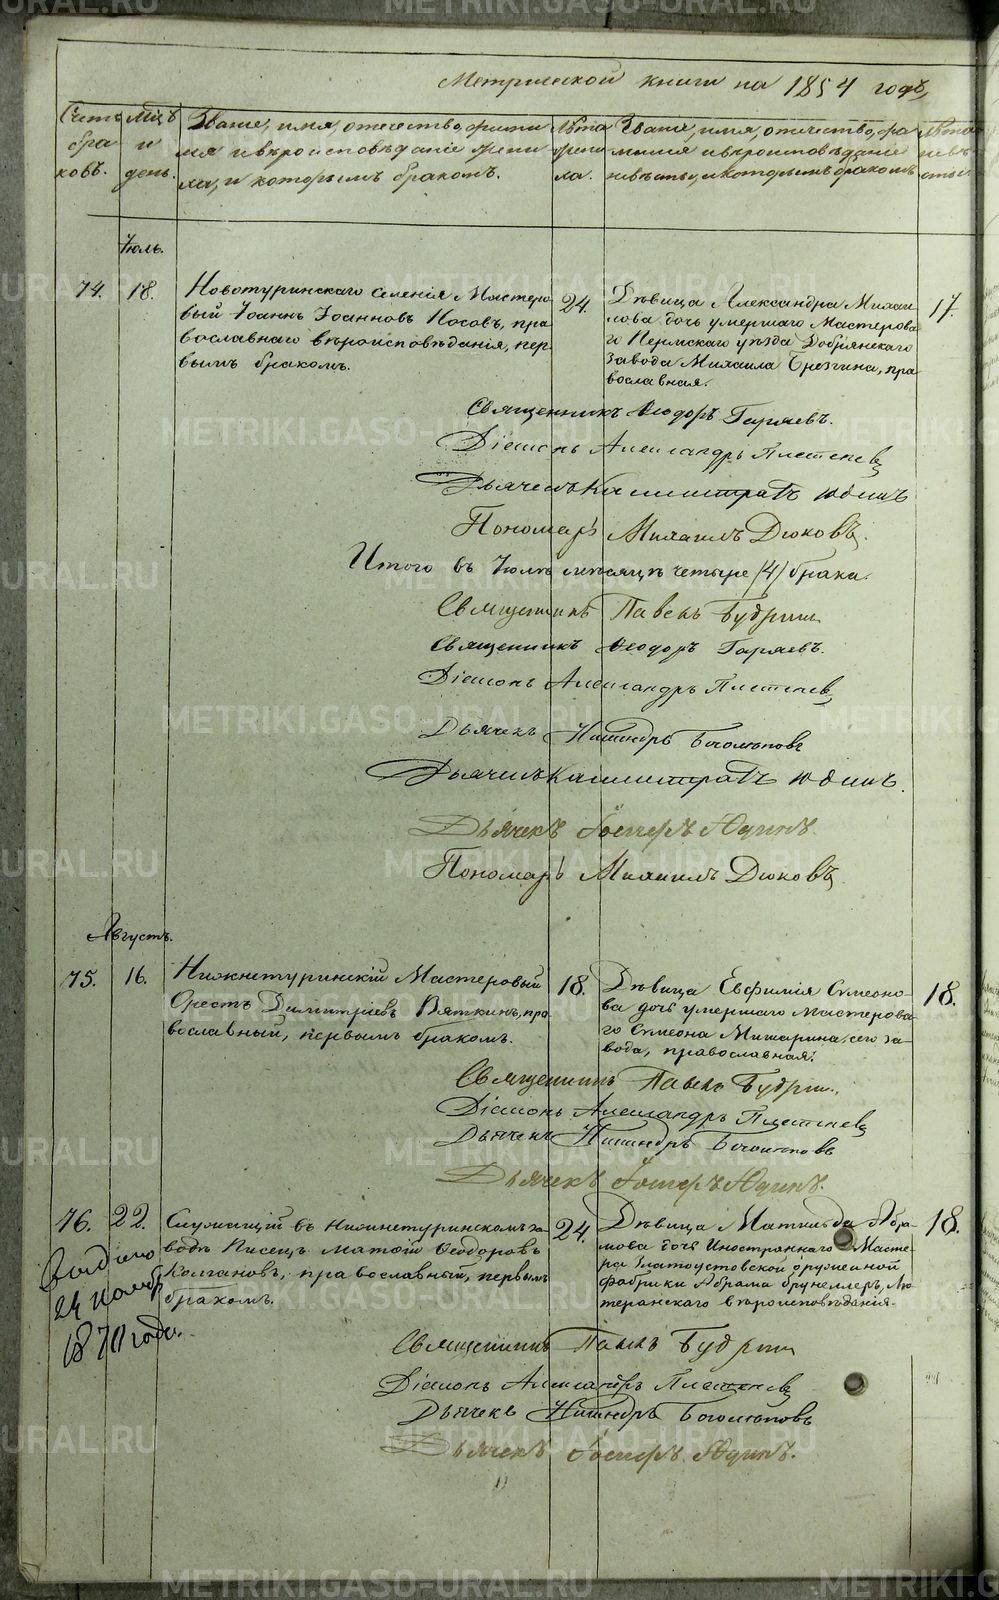 Метрической книги на 1854 годъ,
Счетъ браковъ.
Мѣсяцъ и день.
Званіе, имя, отечество, фамилія и вѣроисповѣданіе жениха, и которымъ бракомъ.
Лѣта жениха.
Званіе, имя, отечество, фамилія и вѣроисповѣданіе невѣсты, и которымъ бракомъ
Лѣта невѣсты
Іюль.
74. 18.
Новотуринскаго селенія Мастеро-
вый Іоаннъ Іоанновъ Носовъ, пра-
вославнаго вѣроисповѣданія, пер-
вымъ бракомъ.
24.
Дѣвица Александра Михаи-
лова дочь умершаго Мастерова-
го Пермскаго уѣзда Добрянскаго
завода Михаила Брезгина, пра-
вославная.
17.
Священникъ Ѳеодоръ Гаряевъ.
Діаконъ Александръ Плетеневъ
Дьячекъ Калистратъ Юдинъ
Пономарь Михаилъ Дюковъ.
Итого въ Іюлѣ мѣсяцѣ четыре (4) брака.
Священникъ Павелъ Будрин
Священникъ Ѳеодоръ Гаряевъ.
Діаконъ Александръ Плетеневъ
Дьячекъ Никандръ Боголѣповъ
Дьячекъ Калистратъ Юдинъ.
Дьячекъ Юдинъ.
Пономарь Михаилъ Дюковъ.
Августъ.
75. 16.
Нижнетуринскій Мастеровый
Орестъ Димитріевъ Вяткинъ, пра-
вославный, первымъ бракомъ.
18.
Дѣвица Евфимія Симеоно-
ва дочь умершаго Мастерова-
го Симеона Мишарина, сего за-
вода, православная.
18.
Священникъ Павелъ Будрин.
Діаконъ Александръ Плетеневъ
Дьячекъ Никандръ Боголѣповъ
Дьячекъ Юдинъ.
76. 22.
Служащій въ Нижнетуринскомъ за-
водѣ Писецъ Матѳій Ѳеодоровъ
Колчановъ, православный, первымъ
бракомъ.
24.
Дѣвица Матильда Абра-
мова дочь Иностраннаго Масте-
ра Златоустовской оружейной
фабрики Абрама Брунеллеръ, Лю-
теранскаго вѣроисповѣданія.
18.
Выдано
24 нояб.
1870 года.
Священникъ Павелъ Будрин
Діаконъ Александръ Плетеневъ
Дьячекъ Никандръ Боголѣповъ
Дьячекъ Юдинъ.
METRIKI.GASO-URAL.RU